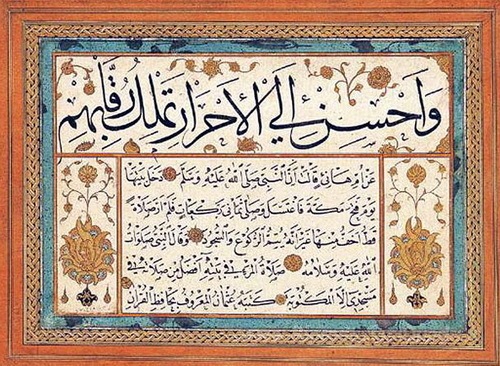 واحسن الي الاحرار تملك رقابهم
عن ام هاني قالت ان النبي صلى الله عليه وسلم دخل بيتها
يوم فتح مكة فاغتسل وصلى ثماني ركعات فلم ار صلاة
قط اخف منها غير انه يتم الركوع والسجود وقال النبي صلوات
الله عليه وسلامه صلاة المرء في بيته افضل من صلاته في
مسجدي هذا الا المكتوبة كتبه عثمان المعروف بحافظ القران